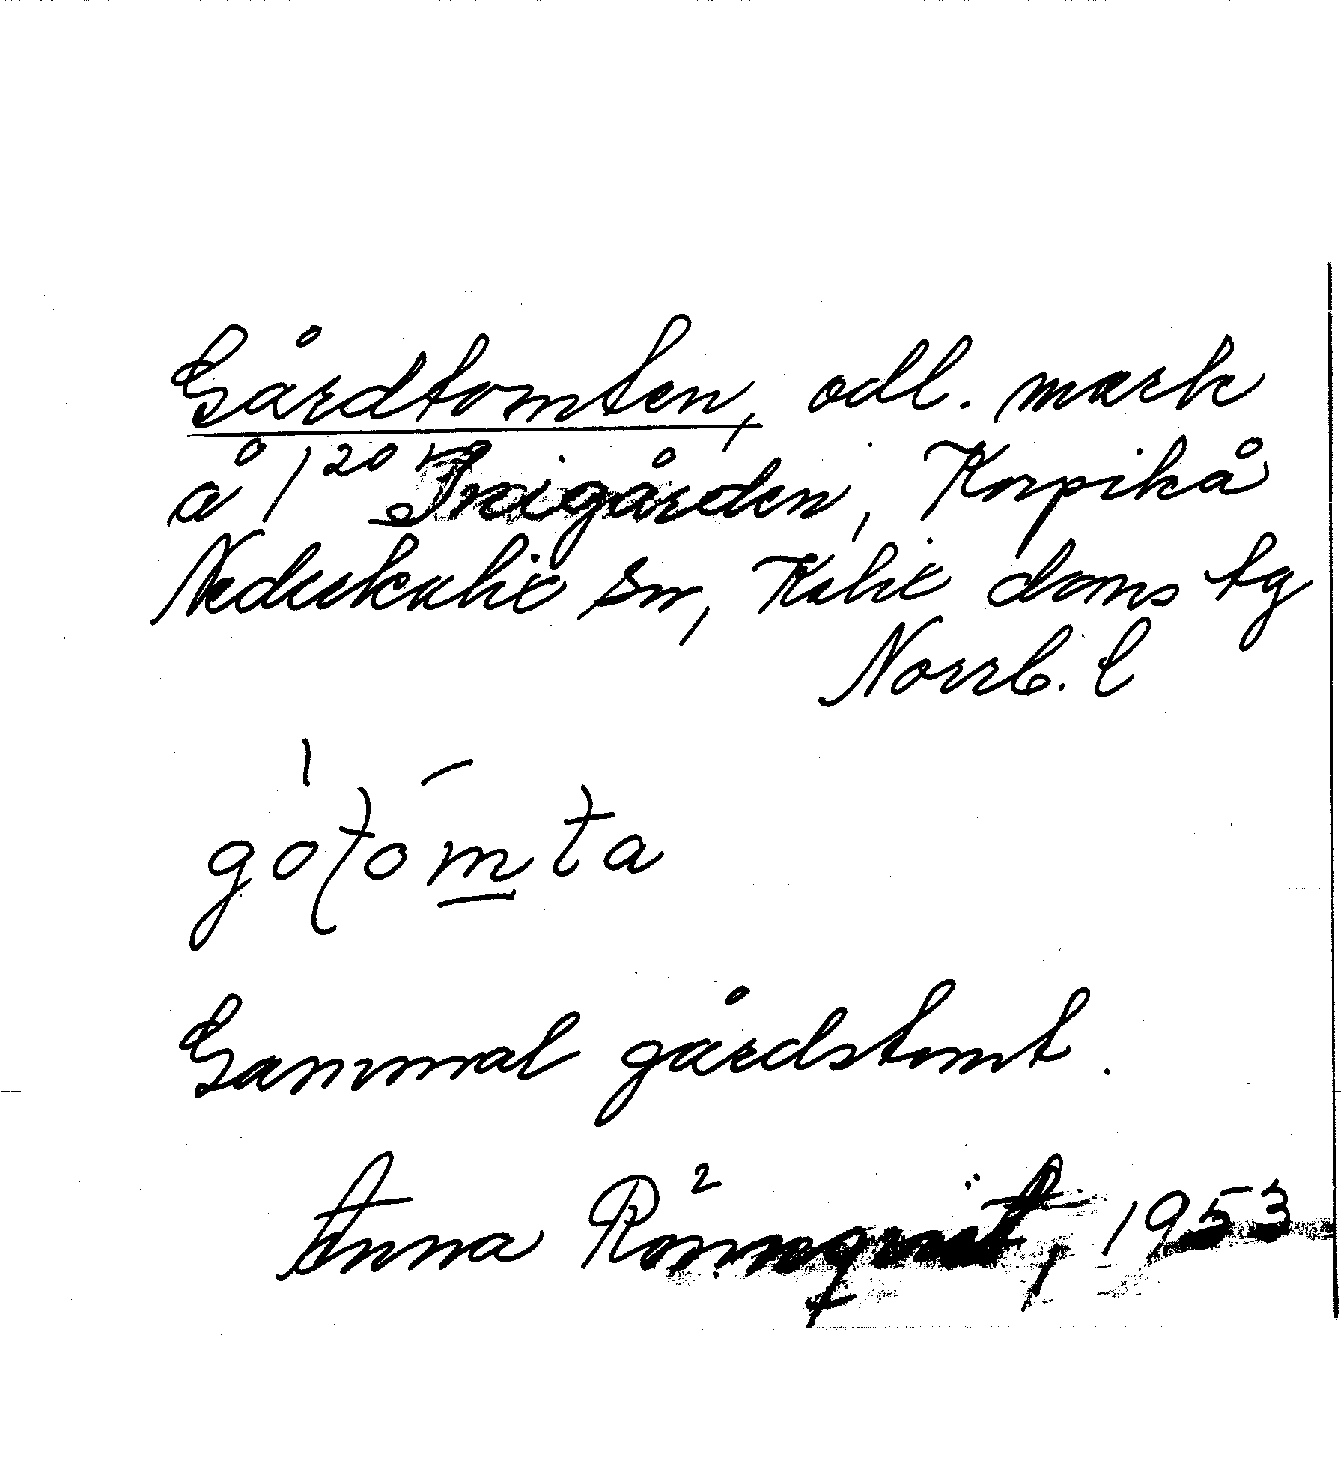 Gårdtomten, odl. mark
å 1²⁰ Freigården, Korpikå
Nederkalix sn, Kalix doms tg
Norrb. l
gótómta
Gammal gårdstomt.
Anna Rönnqvist, 1953